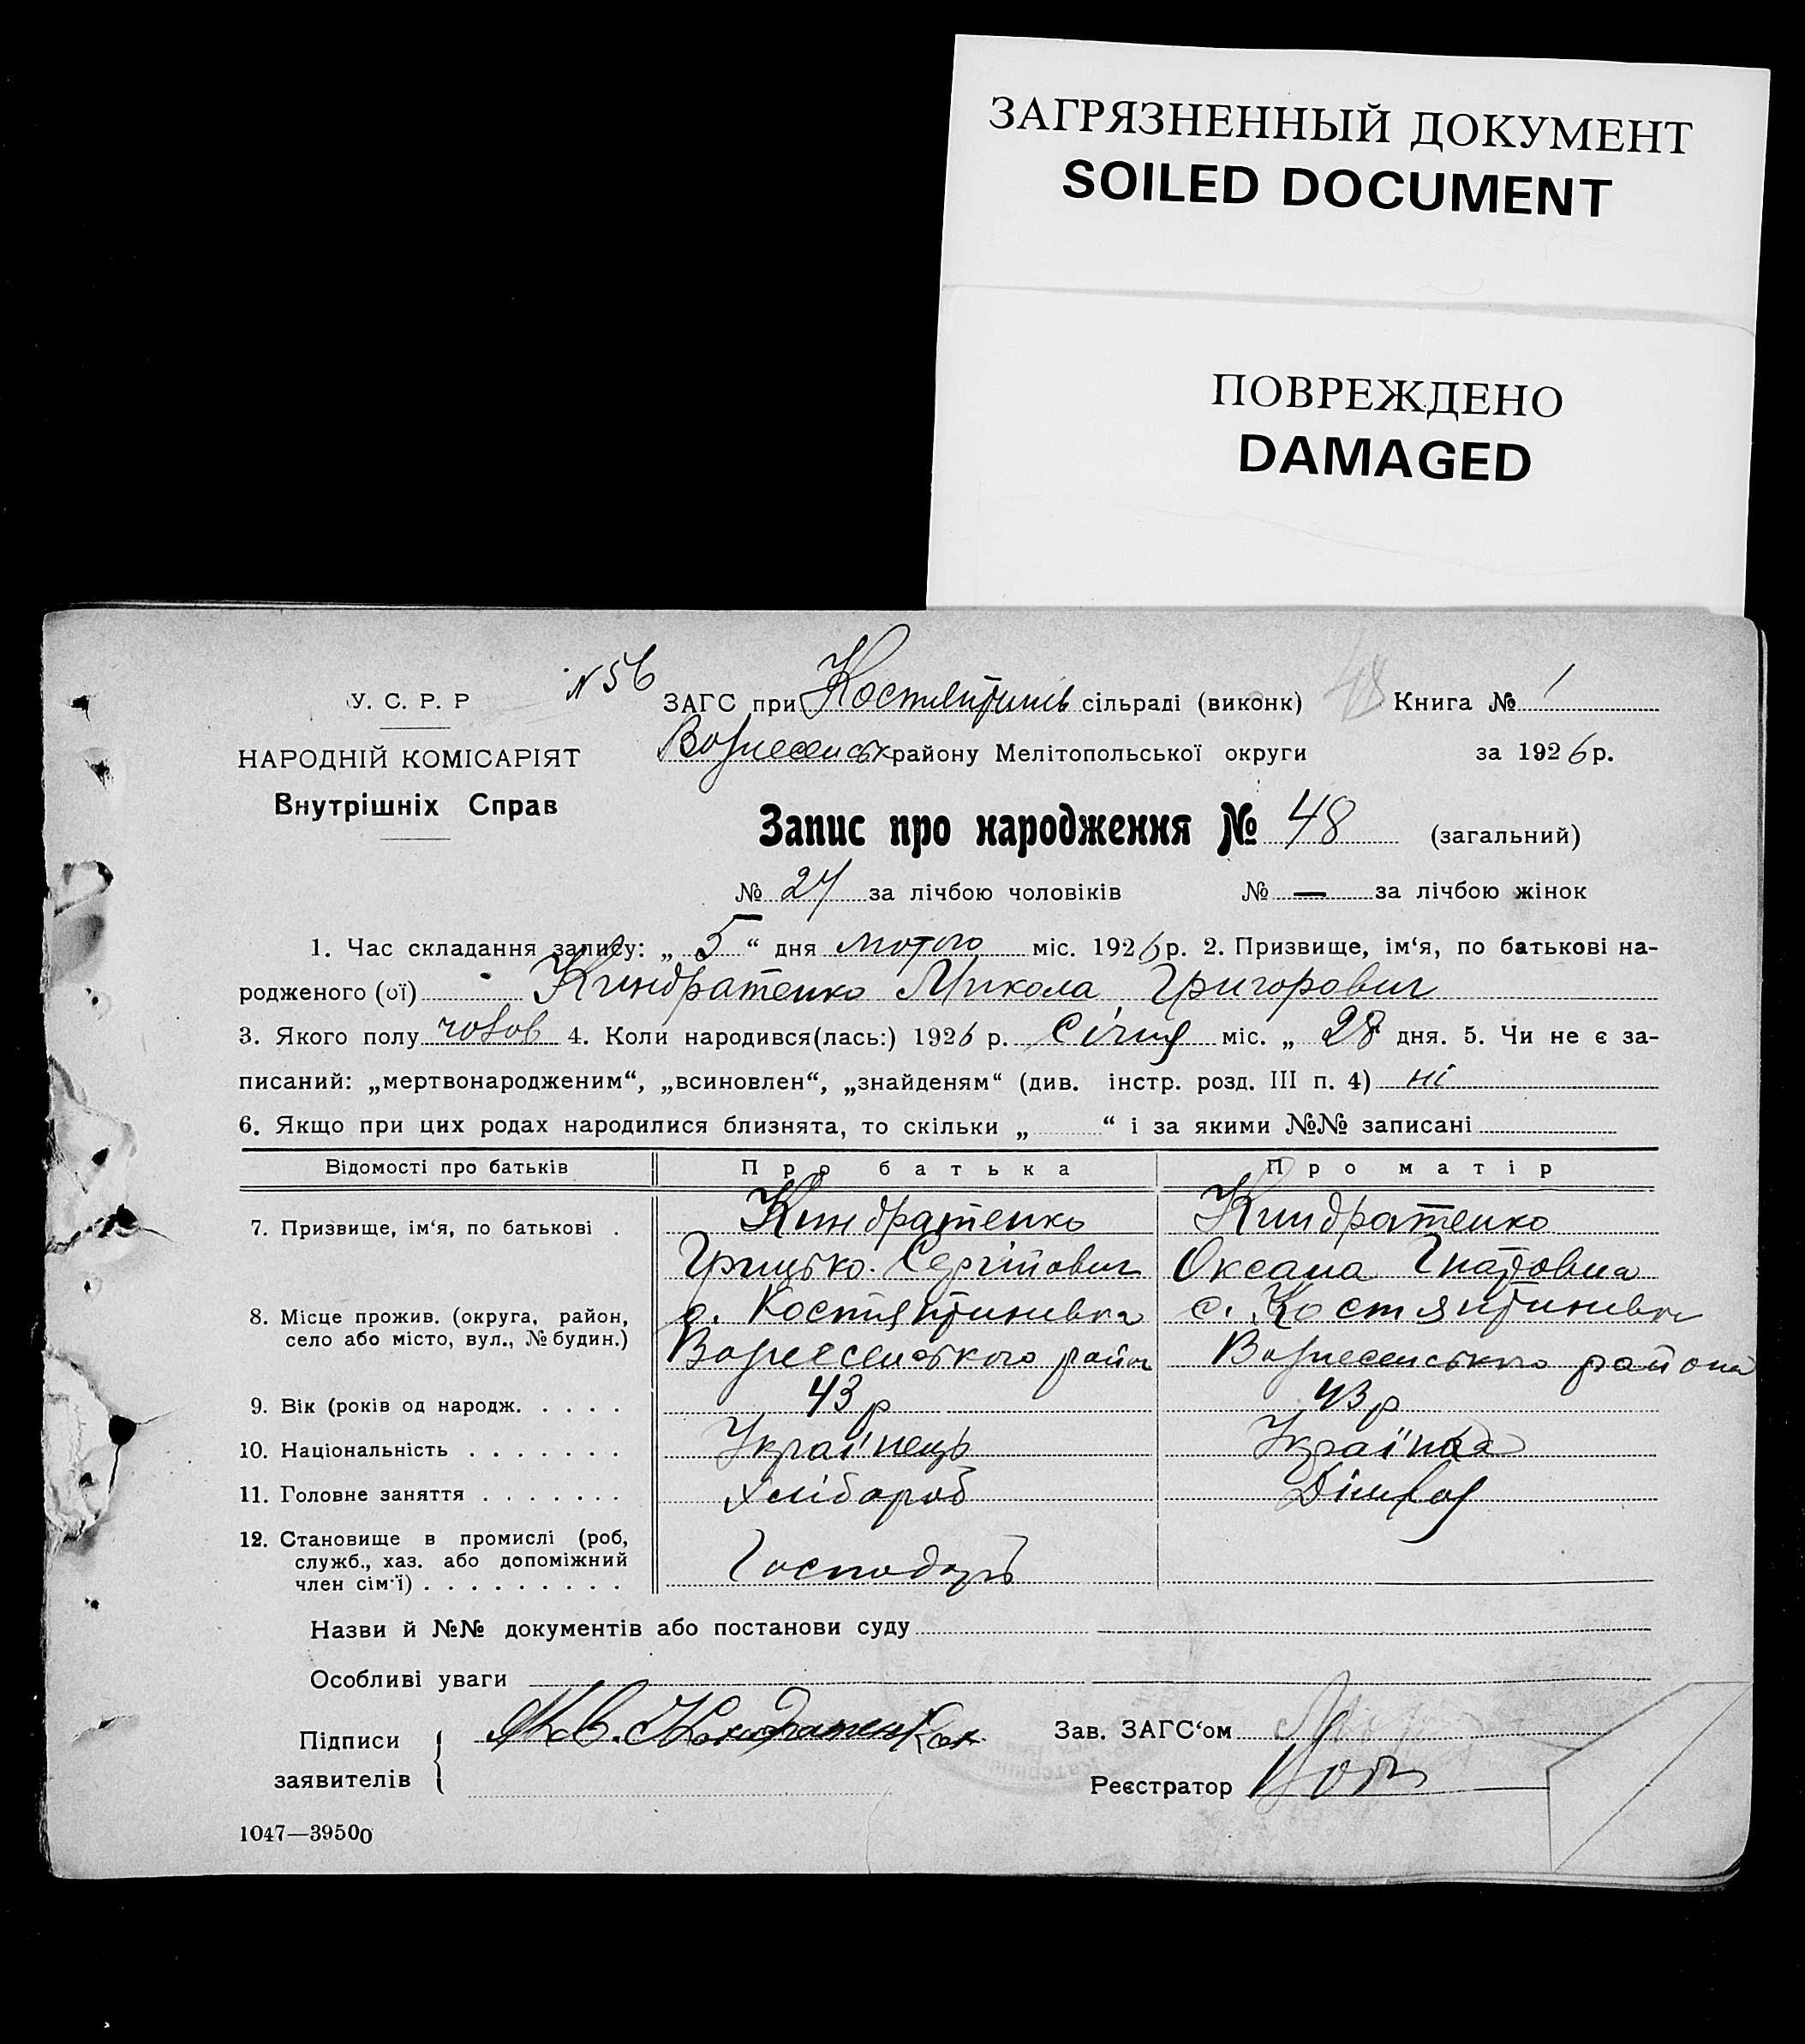 ЗАГРЯЗНЕННЫЙ ДОКУМЕНТ
SOILED DOCUMENT
ПОВРЕЖДЕНО
DAMAGED
У. С. Р. Р
НАРОДНІЙ КОМІСАРІЯТ
Внутрішніх Справ
N 56
ЗАГС при Костянтинів сільраді (виконк) 48 Книга № 1
Вознесенськ району Мелітопольської округи за 1926 р.
Запис про народження № 48 (загальний)
№ 27 за лічбою чоловіків № — за лічбою жінок
1. Час складання запису: „ 5 “ дня лютого міс. 1926 р. 2. Призвище, ім‘я, по батькові на-
родженого (ої) Киндратенко Микола Григорович
3. Якого полу чолов 4. Коли народився(лась:) 1926 р. Січня міс. „ 28 дня. 5. Чи не є за-
писаний: „мертвонародженим“, „всиновлен“, „знайденям“ (див. інстр. розд. III п. 4) ні
6. Якщо при цих родах народилися близнята, то скільки „ “ і за якими №№ записані
Відомості про батьків Про батька Про матір
7. Призвище, ім‘я, по батькові . Киндратенко Киндратенко
Грицько Сергійович Оксана Гнатовна
8. Місце прожив. (округа, район, с. Костянтинівка с. Костянтинівка
село або місто, вул., № будин.) Вознесенського район Вознесенського района
9. Вік (років од народж. . . . . 43 р 43 р
10. Національність . . . . . . . Українець Українка
11. Головне заняття . . . . . . . Хлібороб
12. Становище в промислі (роб,
служб., хаз. або допоміжний
член сім‘ї) . . . . . . . . . Господарь
Назви й №№ документів або постанови суду
Особливі уваги
Підписи
заявителів
Зав. ЗАГС‘ом
Реєстратор
1047—39500